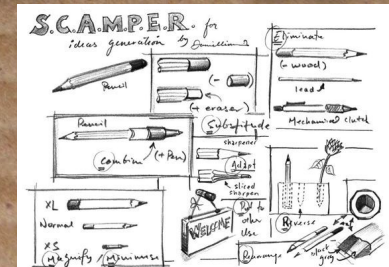 S.C.A.M.P.E.R. for
ideas generation by
Pencil
(-)
(+ eraser)
Substitude
Eliminate
(- wood)
lead
Mechanical clutch
Pencil
Combine (+ Pen)
sharpener
Adapt
sliced
sharpen
XL
Normal
XS
Magnify / Minimise
WELCOME
Put to
other
Use
Reverse
Rearrange